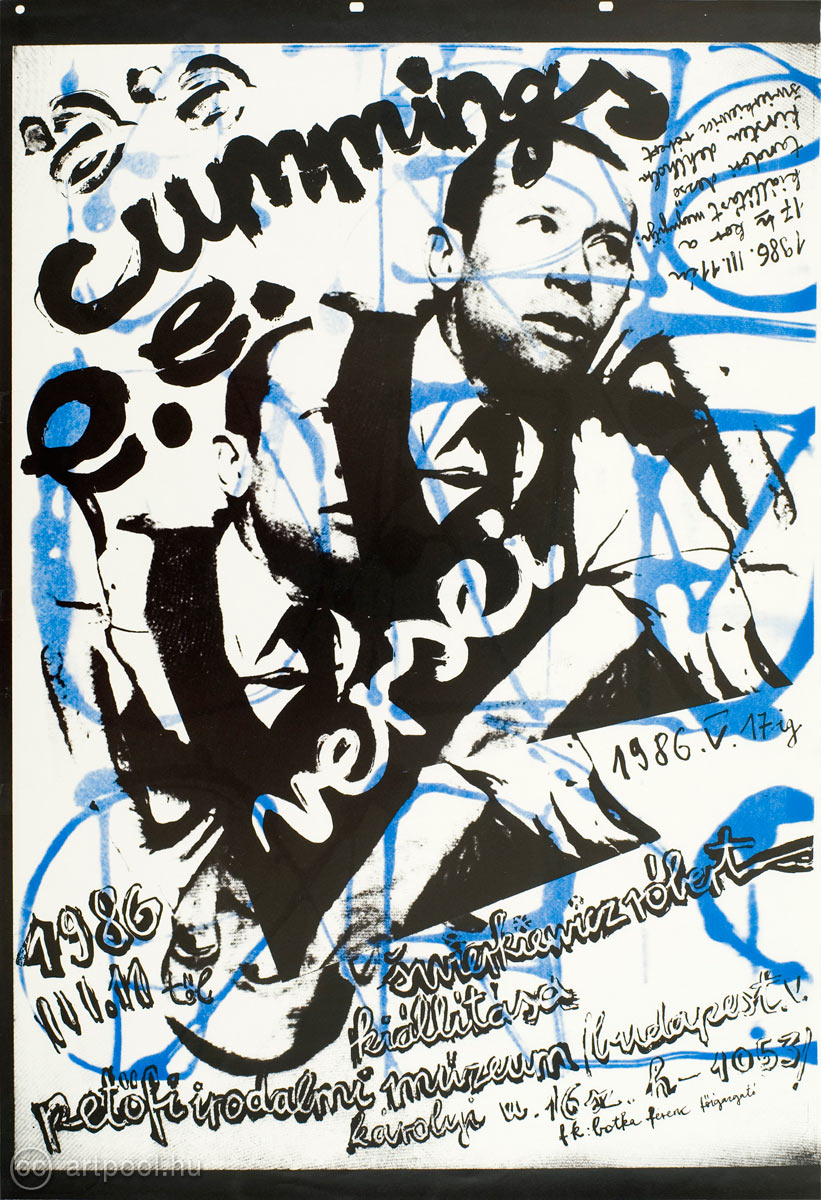 cummings
e. e.
versei
1986. III. 11-én
17 h kor a
kiállítást megnyitja:
tandori dezső
kirsten dehlholm
świerkiewicz robert
1986. V. 17-ig
1986
III. 11 től
świerkiewicz róbert
kiállítása
petőfi irodalmi múzeum /budapest V.
károlyi u. 16 sz.. h – 1053/
f. k: botka ferenc főigazgató
cc artpool.hu